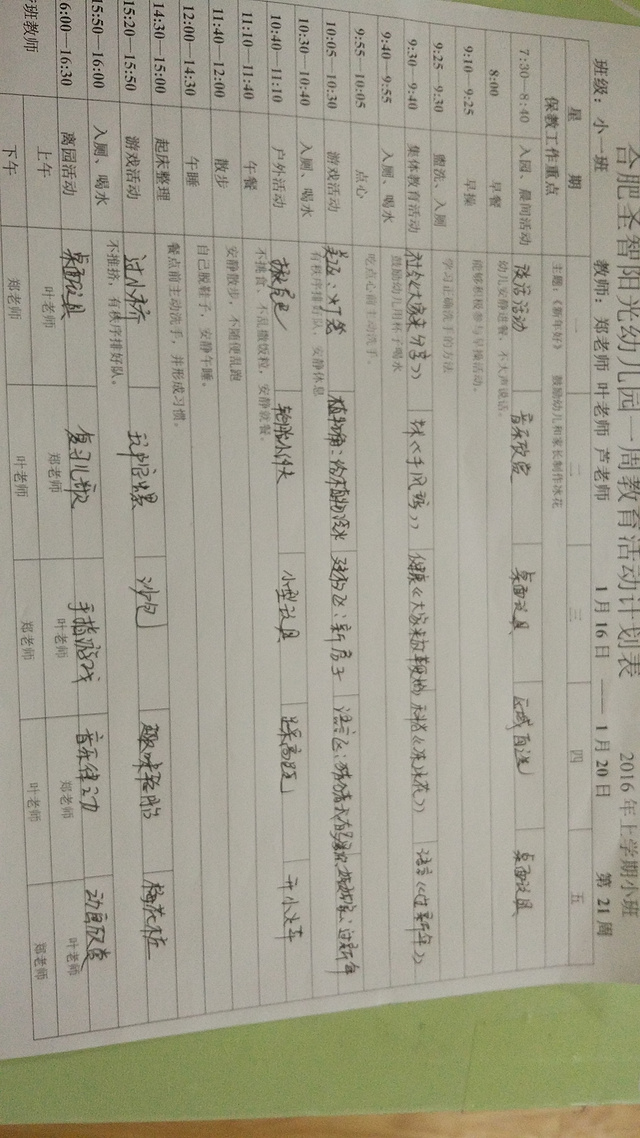 合肥圣智阳光幼儿园一周教育活动计划表 2016年上学期小班
班级：小一班 教师：郑老师 叶老师 芦老师 1月16日 —— 1月20日 第21周
星 期 一 二 三 四 五
保教工作重点 主题：《新年好》 鼓励幼儿和家长制作冰花
7:30—8:40 入园、晨间活动 谈话活动 音乐欣赏 桌面玩具 区域自选 桌面玩具
8:00 早餐 幼儿安静进餐，不大声说话。
9:10—9:25 早操 能够积极参与早操活动。
9:25—9:30 盥洗、入厕 学习正确洗手的方法
9:30—9:40 集体教育活动 社会《大家来分享》 《手风琴》 健康《大家来 》 《冻冰花》 语言《过新年》
9:40—9:55 入厕、喝水 鼓励幼儿用杯子喝水
9:55—10:05 点心 吃点心前主动洗手。
10:05—10:30 游戏活动 美工区：灯笼 植物角：给植物浇水 建构区：新房子 语言区： 过新年
10:30—10:40 入厕、喝水 有秩序排好队，安静休息
10:40—11:10 户外活动 轮胎小伙 小型玩具 踩高跷 开小火车
11:10—11:40 午餐 不挑食、不乱撒饭粒，安静就餐。
11:40—12:00 散步 安静散步，不随便乱跑
12:00—14:30 午睡 自己脱鞋子，安静午睡。
14:30—15:00 起床整理 餐点前主动洗手，并形成习惯。
15:20—15:50 游戏活动 过小桥 沙包 趣味轮胎 梅花桩
15:50—16:00 入厕、喝水 不推挤，有秩序排好队。
6:00—16:30 离园活动 桌面玩具 复习儿歌 手指游戏 音乐律动 动画欣赏
班教师 上午 叶老师 郑老师 叶老师 郑老师 叶老师
下午 郑老师 叶老师 郑老师 叶老师 郑老师